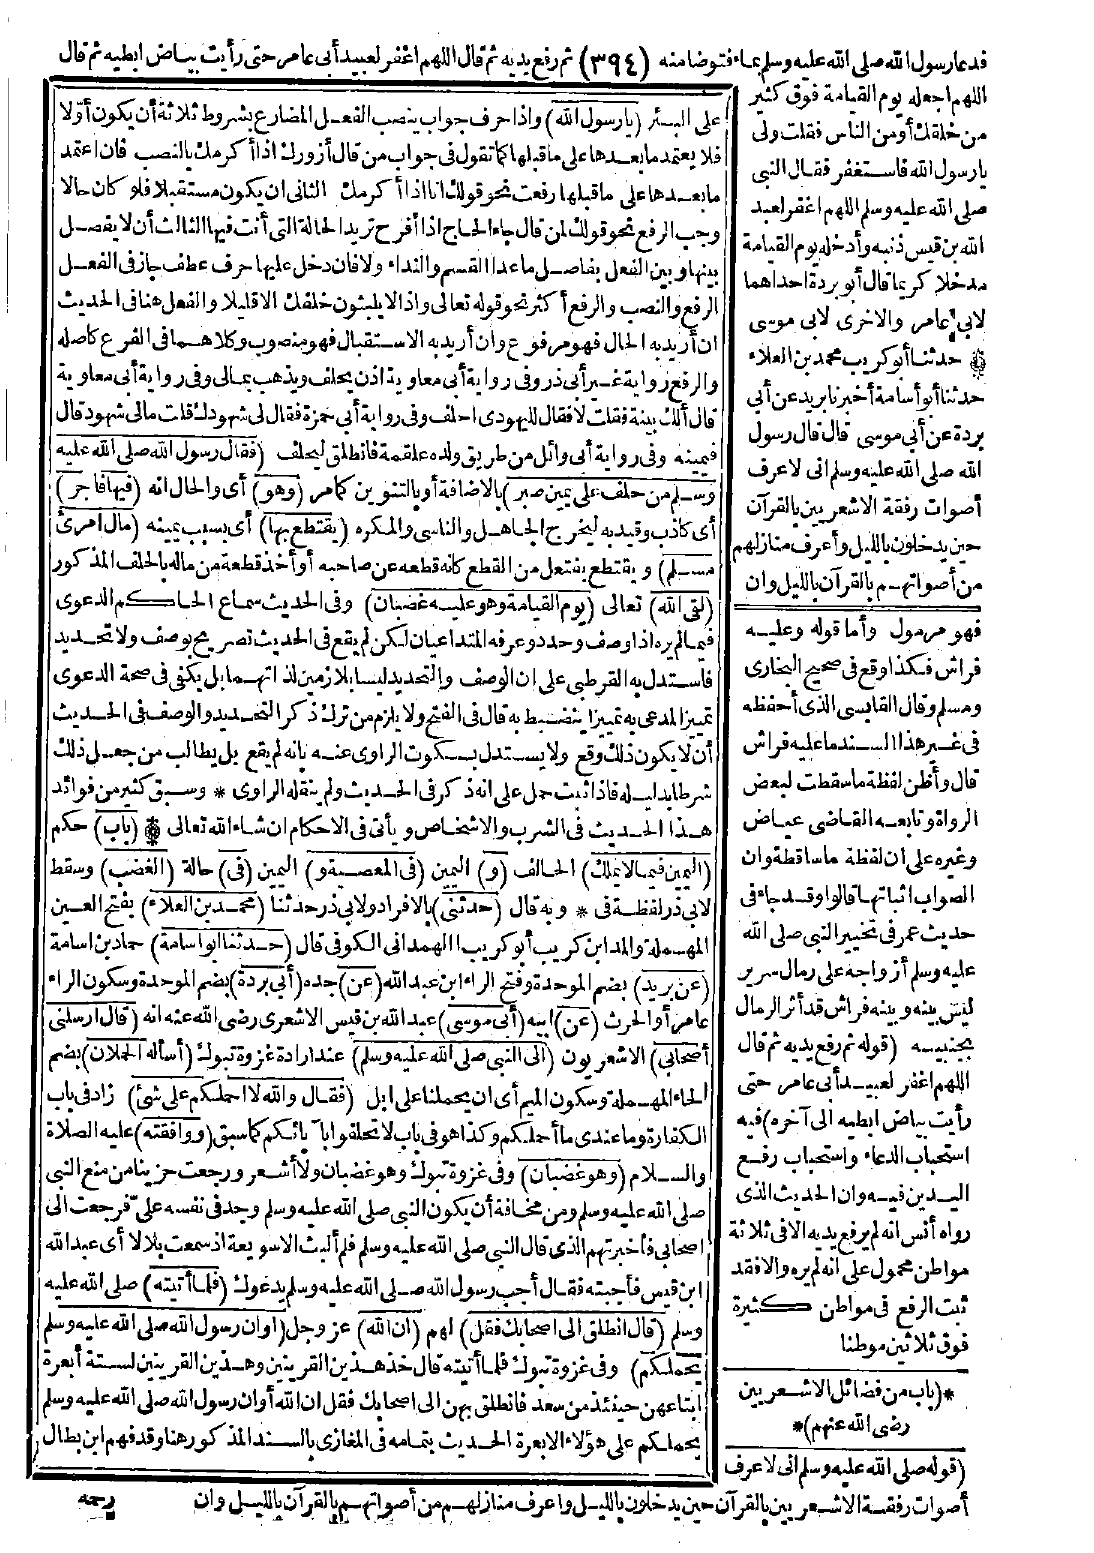 فدعا رسول الله صلى الله عليه وسلم بماء فتوضأ منه (٣٩٤) ثم رفع يديه ثم قال اللهم اغفر لعبيد أبى عامر حتى رأيت بياض ابطيه ثم قال
اللهم اجعله يوم القيامة فوق كثير
من خلقك أو من الناس فقلت ولى
يارسول الله فاستغفر فقال النبى
صلى الله عليه وسلم اللهم اغفر لعبد
الله بن قيس ذنبه وأدخله يوم القيامة
مدخلا كريما قال أبو بردة احداهما
لابى عامر والاخرى لابى موسى
حدثنا أبو كريب محمد بن العلاء
حدثنا أبو أسامة أخبرنا بريد عن أبى
بردة عن أبى موسى قال قال رسول
الله صلى الله عليه وسلم انى لاعرف
أصوات رفقة الاشعريين بالقرآن
حين يدخلون بالليل وأعرف منازلهم
من أصواتهم بالقرآن بالليل وان
فهو مرمول وأما قوله وعليه
فراش فكذا وقع فى صحيح البخارى
ومسلم وقال القابسى الذى أحفظه
فى غير هذا السند ما عليه فراش
قال وأظن لفظة ما سقطت لبعض
الرواة وتابعه القاضى عياض
وغيره على ان لفظة ما ساقطة وان
الصواب اثباتها قالوا وقد جاء فى
حديث عمر فى تخيير النبى صلى الله
عليه وسلم أزواجه على رمال سرير
ليس بينه وبينه فراش قد أثر الرمال
بجنبيه (قوله ثم رفع يديه ثم قال
اللهم اغفر لعبيد أبى عامر حتى
رأيت بياض ابطيه الى آخره) فيه
استحباب الدعاء واستحباب رفع
اليدين فيه وان الحديث الذى
رواه أنس انه لم يرفع يديه الا فى ثلاثة
مواطن محمول على انه لم يره والا فقد
ثبت الرفع فى مواطن كثيرة
فوق ثلاثين موطنا
*(باب من فضائل الاشعريين
رضى الله عنهم)*
(قوله صلى الله عليه وسلم انى لاعرف
أصوات رفقة الاشعريين بالقرآن حين يدخلون بالليل واعرف منازلهم من أصواتهم بالقرآن بالليل وان
على البئر (يارسول الله) واذا حرف جواب ينصب الفعل المضارع بشروط ثلاثة أن يكون أولا
فلا يعتمد ما بعدها على ما قبلها كما تقول فى جواب من قال أزورك اذا أكرمك بالنصب فان اعتمد
ما بعدها على ما قبلها رفعت نحو قولك انا اذا أكرمك الثانى ان يكون مستقبلا فلو كان حالا
وجب الرفع نحو قولك لمن قال جاء الحاج اذا أفرح تريد الحالة التى أنت فيها الثالث أن لا يفصل
بينها وبين الفعل بفاصل ما عدا القسم والنداء ولا فان دخل عليها حرف عطف جاز فى الفعل
الرفع والنصب والرفع أكثر نحو قوله تعالى واذا لا يلبثون خلفك الا قليلا والفعل هنا فى الحديث
ان أريد به الحال فهو مرفوع وان أريد به الاستقبال فهو منصوب وكلاهما فى الفرع كاصله
والرفع رواية غير أبى ذر وفى رواية أبى معاوية اذن يحلف ويذهب بمالى وفى رواية أبى معاوية
قال ألك بينة فقلت لا فقال لليهودى احلف وفى رواية أبى حمزة فقال لى شهودك قلت مالى شهود قال
فيمينه وفى رواية أبى وائل من طريق ولده علقمة فانطلق ليحلف (فقال رسول الله صلى الله عليه
وسلم من حلف على يمين صبر) بالاضافة أو بالتنوين كما مر (وهو) أى والحال انه (فيها فاجر)
أى كاذب وقيد به ليخرج الجاهل والناسى والمكره (يقتطع بها) أى بسبب يمينه (مال امرئ
مسلم) ويقتطع يفتعل من القطع كانه قطعه عن صاحبه أو أخذ قطعة من ماله بالحلف المذكور
(لقى الله) تعالى (يوم القيامة وهو عليه غضبان) وفى الحديث سماع الحاكم الدعوى
فيما لم يره اذا وصف وحدد وعرفه المتداعيان لكن لم يقع فى الحديث تصريح بوصف ولا تحديد
فاستدل به القرطبى على ان الوصف والتحديد ليسا بلازمين لذاتهما بل يكفى فى صحة الدعوى
تمييز المدعى به تمييزا ينضبط به قال فى الفتح ولا يلزم من ترك ذكر التحديد والوصف فى الحديث
أن لا يكون ذلك وقع ولا يستدل بسكوت الراوى عنه بانه لم يقع بل يطالب من جعل ذلك
شرطا بدليله فاذا ثبت حمل على انه ذكر فى الحديث ولم ينقله الراوى * وسبق كثير من فوائد
هذا الحديث فى الشرب والاشخاص ويأتى فى الاحكام ان شاء الله تعالى (باب) حكم
(اليمين فيما لا يملك) الحالف (و) اليمين (فى المعصية و) اليمين (فى) حالة (الغضب) وسقط
لابى ذر لفظة فى * وبه قال (حدثنى) بالافراد ولابى ذر حدثنا (محمد بن العلاء) بفتح العين
المهملة والمد ابن كريب أبو كريب الهمدانى الكوفى قال (حدثنا ابو اسامة) حماد بن اسامة
(عن بريد) بضم الموحدة وفتح الراء ابن عبد الله (عن) جده (أبى بردة) بضم الموحدة وسكون الراء
عامر أو الحرث (عن) ابيه (أبى موسى) عبد الله بن قيس الاشعرى رضى الله عنه انه (قال ارسلنى
أصحابى) الاشعريون (الى النبى صلى الله عليه وسلم) عند ارادة غزوة تبوك (أسأله الحملان) بضم
الحاء المهملة وسكون الميم أى ان يحملنا على ابل (فقال والله لا احملكم على شئ) زاد فى باب
الكفارة وما عندى ما أحملكم وكذا هو فى باب لا تحلفوا بآبائكم كما سبق (ووافقته) عليه الصلاة
والسلام (وهو غضبان) وفى غزوة تبوك وهو غضبان ولا أشعر ورجعت حزينا من منع النبى
صلى الله عليه وسلم ومن مخافة أن يكون النبى صلى الله عليه وسلم وجد فى نفسه علىّ فرجعت الى
اصحابى فأخبرتهم الذى قال النبى صلى الله عليه وسلم فلم ألبث الا سويعة اذ سمعت بلالا أى عبد الله
ابن قيس فأجبته فقال أجب رسول الله صلى الله عليه وسلم يدعوك (فلما أتيته) صلى الله عليه
وسلم (قال انطلق الى اصحابك فقل) لهم (ان الله) عز وجل (أو ان رسول الله صلى الله عليه وسلم
يحملكم) وفى غزوة تبوك فلما أتيته قال خذ هذين القرينين وهذين القرينين لستة أبعرة
ابتاعهن حينئذ من سعد فانطلق بهن الى اصحابك فقل ان الله أو ان رسول الله صلى الله عليه وسلم
يحملكم على هؤلاء الابعرة الحديث بتمامه فى المغازى بالسند المذكور هنا وقد فهم ابن بطال
رحمه